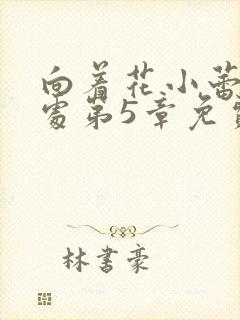 向着花小蕾
处第5章免费
林书豪